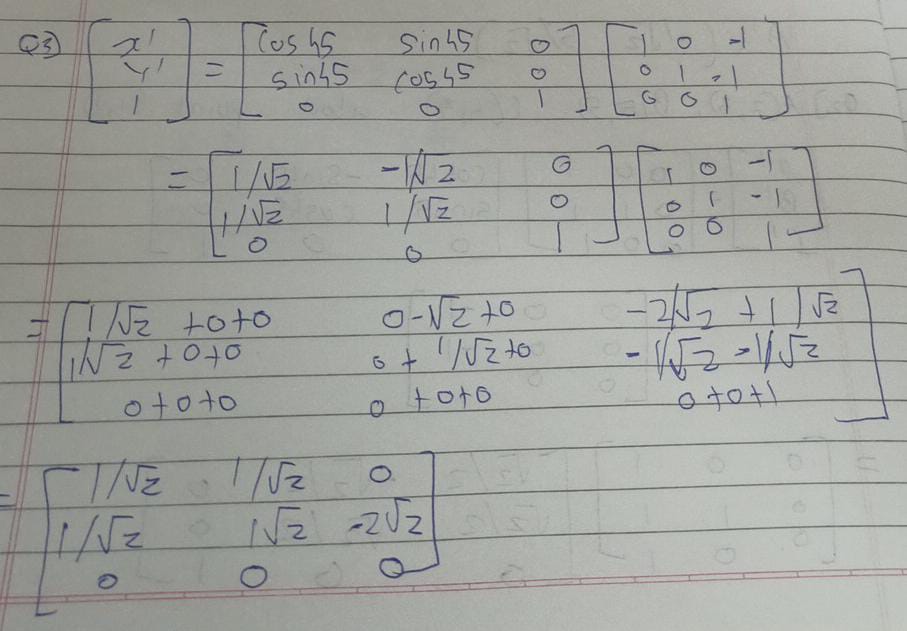 Q3) [x'] = [cos45 sin45 0] [1 0 -1]
[y'] [sin45 cos45 0] [0 1 -1]
[1] [0 0 1] [0 0 1]
= [1/√2 -1/√2 0] [1 0 -1]
[1/√2 1/√2 0] [0 1 -1]
[0 0 1] [0 0 1]
= [1/√2 +0+0 0-√2+0 -2/√2 +1/√2]
[1/√2 +0+0 0+1/√2+0 -1/√2 -1/√2]
[0+0+0 0+0+0 0+0+1]
= [1/√2 1/√2 0]
[1/√2 1√2 -2√2]
[0 0 0]